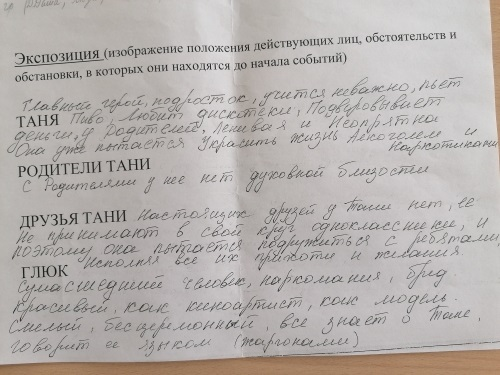 Экспозиция (изображение положения действующих лиц, обстоятельств и
обстановки, в которых они находятся до начала событий)
Главный герой, подросток, учится неважно, пьет
ТАНЯ Пиво, Любит дискотеки, Подворовывает
деньги у Родителей. Ленивая и Неопрятна
Она уже пытается Украсить жизнь Алкоголем и
Наркотиками
РОДИТЕЛИ ТАНИ
С Родителями у нее нет духовной близости
ДРУЗЬЯ ТАНИ Настоящих друзей у Тани нет, ее
Не принимают в свой круг одноклассники, и
поэтому она пытается подружиться с ребятами,
Исполняя все их прихоти и желания
ГЛЮК
Сумасшедший человек, наркомания, бред.
красивый, как киноартист, как модель.
Смелый, бесцеремонный, все знает о Тане,
говорит ее языком (жаргонами)